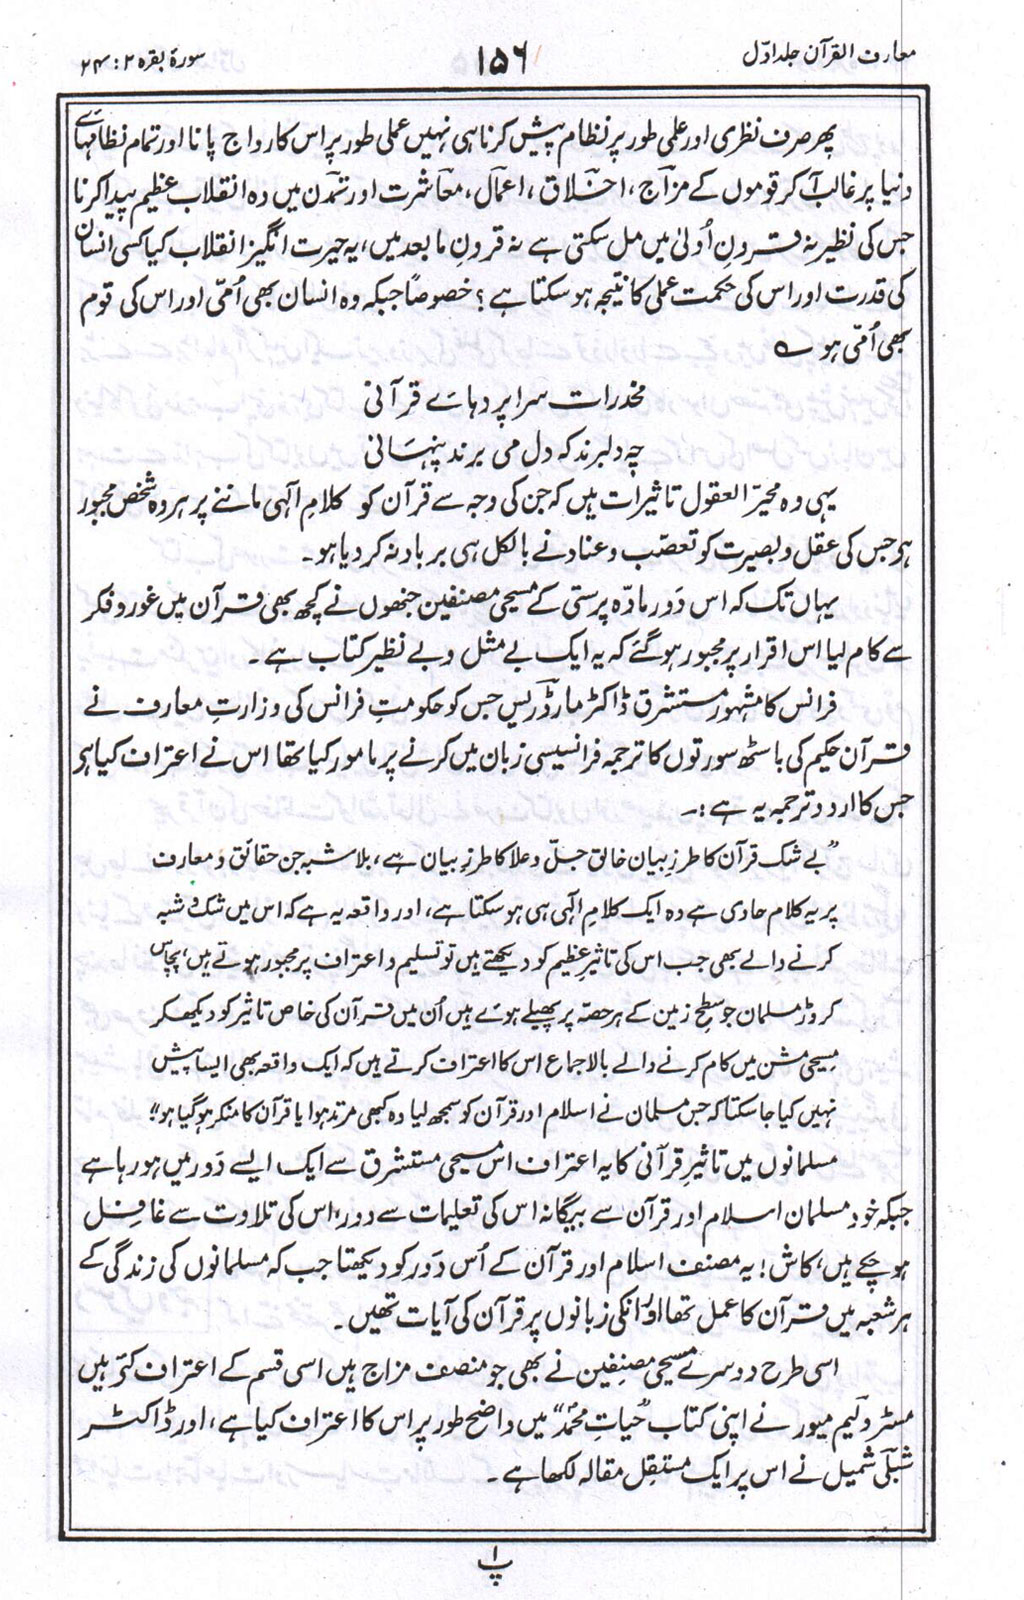 معارف القرآن جلد اوّل
۱۵۶
سورۂ بقرہ ۲ : ۲۴
پھر صرف نظری اور علمی طور پر نظام پیش کرنا ہی نہیں عملی طور پر اس کا رواج پانا اور تمام نظامہائے
دنیا پر غالب آکر قوموں کے مزاج، اخلاق، اعمال، معاشرت اور تمدن میں وہ انقلاب عظیم پیدا کرنا
جس کی نظیر نہ قرونِ اُولیٰ میں مل سکتی ہے نہ قرونِ ما بعد میں، یہ حیرت انگیز انقلاب کیا کسی انسان
کی قدرت اور اس کی حکمت عملی کا نتیجہ ہو سکتا ہے؟ خصوصاً جبکہ وہ انسان بھی اُمّی اور اس کی قوم
بھی اُمّی ہو ؎
مخدرات سرا پردہائے قرآنی
چہ دلبرند کہ دل می برند پنہانی
یہی وہ محیّر العقول تاثیرات ہیں کہ جن کی وجہ سے قرآن کو کلامِ الٰہی ماننے پر ہر وہ شخص مجبور
ہے جس کی عقل و بصیرت کو تعصّب و عناد نے بالکل ہی برباد نہ کر دیا ہو۔
یہاں تک کہ اس دَور مادّہ پرستی کے مسیحی مصنفین جنھوں نے کچھ بھی قرآن میں غور و فکر
سے کام لیا اس اقرار پر مجبور ہو گئے کہ یہ ایک بے مثل و بے نظیر کتاب ہے۔
فرانس کا مشہور مستشرق ڈاکٹر مارڈریس جس کو حکومتِ فرانس کی وزارتِ معارف نے
قرآن حکیم کی باسٹھ سورتوں کا ترجمہ فرانسیسی زبان میں کرنے پر مامور کیا تھا اس نے اعتراف کیا ہے
جس کا اردو ترجمہ یہ ہے :۔
”بے شک قرآن کا طرزِ بیان خالق جلّ و علا کا طرزِ بیان ہے، بلاشبہ جن حقائق و معارف
پر یہ کلام حاوی ہے وہ ایک کلامِ الٰہی ہی ہو سکتا ہے، اور واقعہ یہ ہے کہ اس میں شک و شبہ
کرنے والے بھی جب اس کی تاثیرِ عظیم کو دیکھتے ہیں تو تسلیم و اعتراف پر مجبور ہوتے ہیں، پچاس
کروڑ مسلمان جو سطح زمین کے ہر حصّہ پر پھیلے ہوئے ہیں اُن میں قرآن کی خاص تاثیر کو دیکھ کر
مسیحی مشن میں کام کرنے والے بالاجماع اس کا اعتراف کرتے ہیں کہ ایک واقعہ بھی ایسا پیش
نہیں کیا جا سکتا کہ جس مسلمان نے اسلام اور قرآن کو سمجھ لیا وہ کبھی مرتد ہوا یا قرآن کا منکر ہو گیا ہو“
مسلمانوں میں تاثیرِ قرآنی کا یہ اعتراف اس مسیحی مستشرق سے ایک ایسے دَور میں ہو رہا ہے
جبکہ خود مسلمان اسلام اور قرآن سے بیگانہ اس کی تعلیمات سے دور، اس کی تلاوت سے غافل
ہو چکے ہیں، کاش! یہ مصنف اسلام اور قرآن کے اُس دَور کو دیکھتا جب کہ مسلمانوں کی زندگی کے
ہر شعبہ میں قرآن کا عمل تھا اور انکی زبانوں پر قرآن کی آیات تھیں۔
اسی طرح دوسرے مسیحی مصنفین نے بھی جو منصف مزاج ہیں اسی قسم کے اعتراف کئے ہیں
مسٹر ولیم میور نے اپنی کتاب ”حیاتِ محمدؐ“ میں واضح طور پر اس کا اعتراف کیا ہے، اور ڈاکٹر
شبلی شمیل نے اس پر ایک مستقل مقالہ لکھا ہے۔
پ ۱